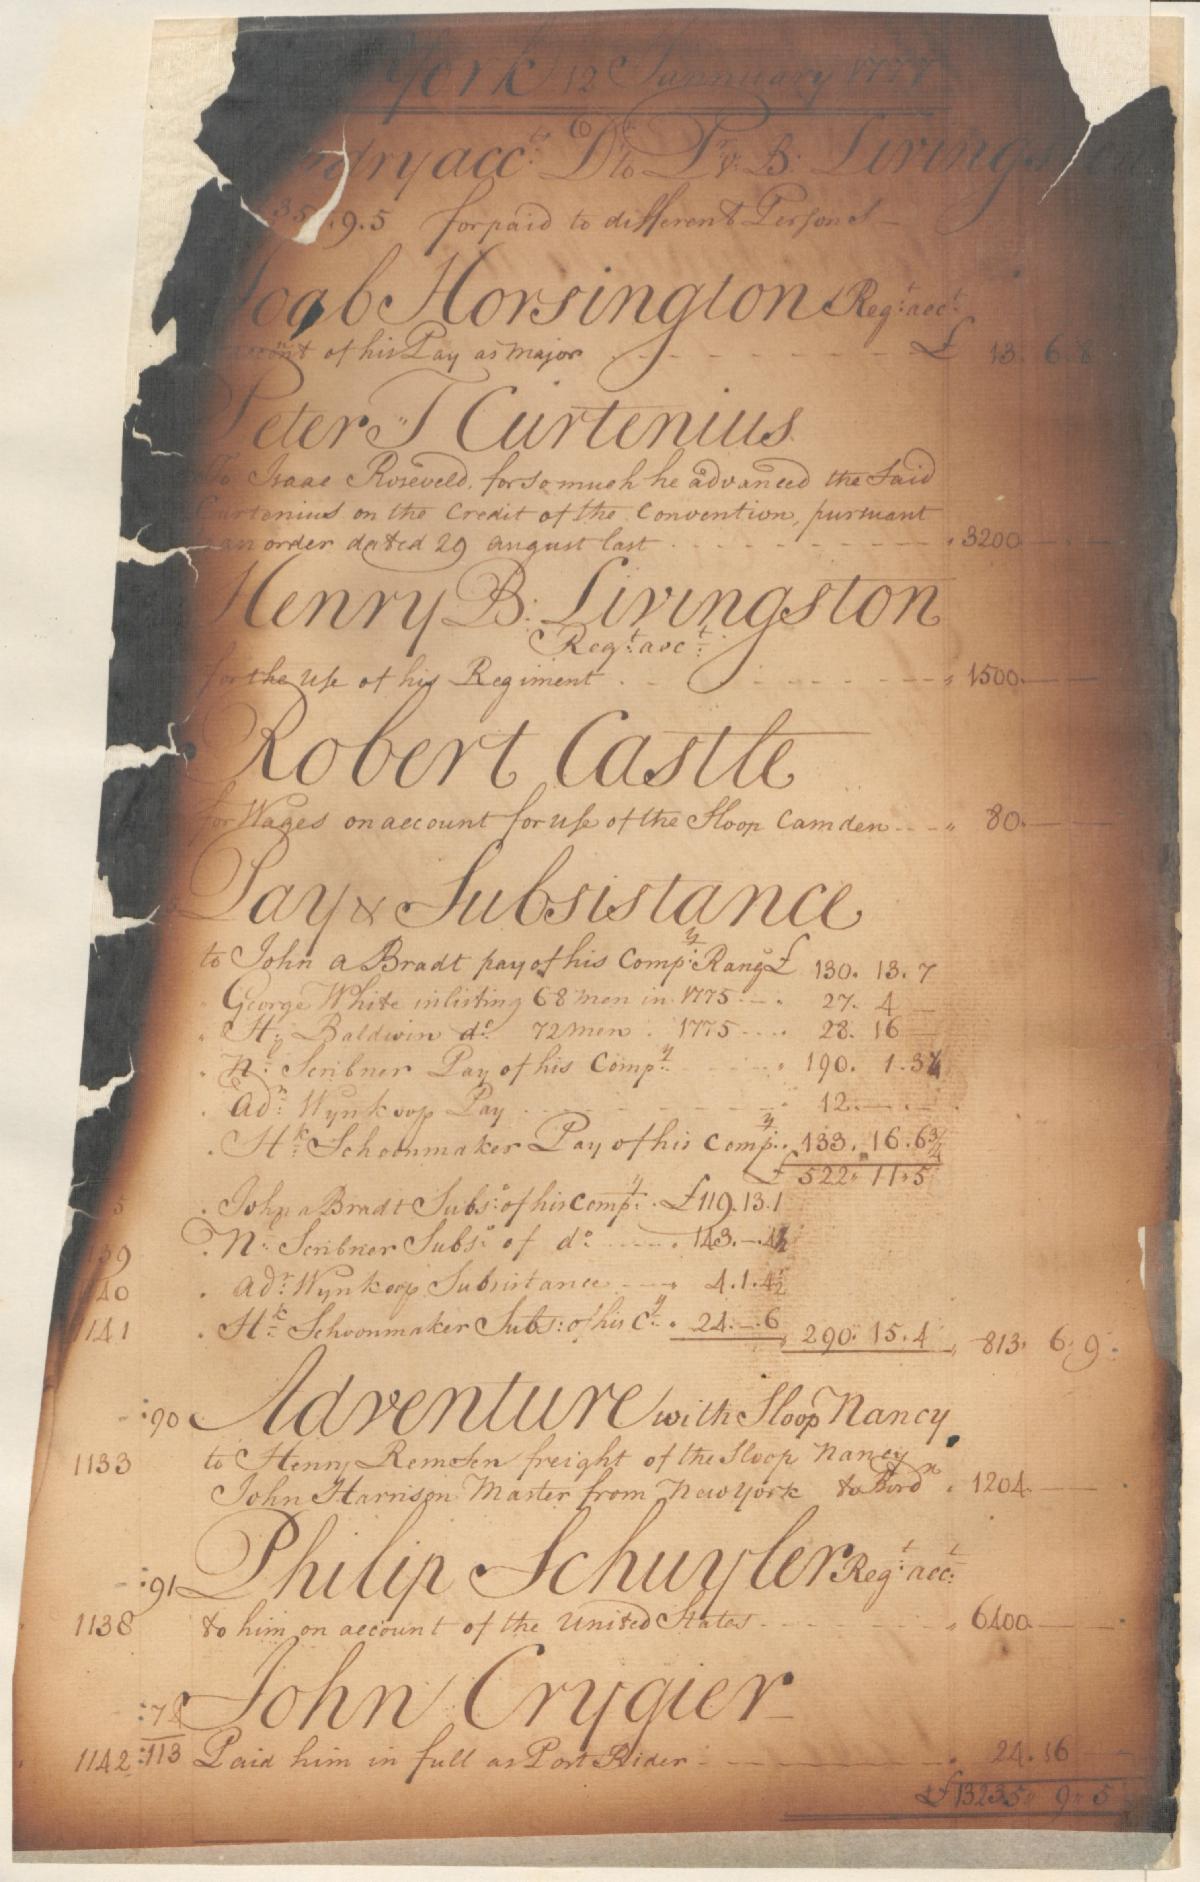 York 12 Jannuary 1777
ndry acc.ts Dr to P: V: B: Livingston
35.9.5 for paid to different Persons
Joab Horsington Reg:t acc:t
account of his Pay as Major £ 13. 6. 8
Peter T Curtenius
To Isaac Roseveld, for so much he advanced the Said
Curtenius on the Credit of the Convention, pursuant
an order dated 29 august last 3200
Henry B: Livingston
Reg:t acc:t
for the Use of his Regiment 1500
Robert Castle
for Wages on account for use of the Sloop Camden 80
Pay & Subsistance
to John a Bradt pay of his Comp:y Rang:s £ 130. 13. 7
" George White inlisting 68 men in 1775 27. 4
" H: Baldwin d:o 72 men 1775 28. 16
" N:l Scribner Pay of his Comp:y 190. 1. 3¼
" Ad:n Wynkoop Pay 12
" H:k Schoonmaker Pay of his Comp:y 133. 16. 6¾
£ 522. 11. 5
5 " John a Bradt Subs: of his Comp:y £ 119. 13. 1
139 " N: Scribner Subs: of d:o 143. —. 4½
40 " Ad:n Wynkoop Subsistance 4. 1. 4½
1141 " H:k Schoonmaker Subs: of his C:y 24. —. 6 290. 15. 4 813. 6. 9
:90 Adventure with Sloop Nancy
1133 to Henry Remsen freight of the Sloop Nancy
John Harrison Master from New York to Bord:x 1204
:91 Philip Schuyler Reg:t acc:t
1138 to him on account of the United States 6400
John Crygier
1142 :113 Paid him in full as Post Rider 24. 16
£ 13235. 9. 5